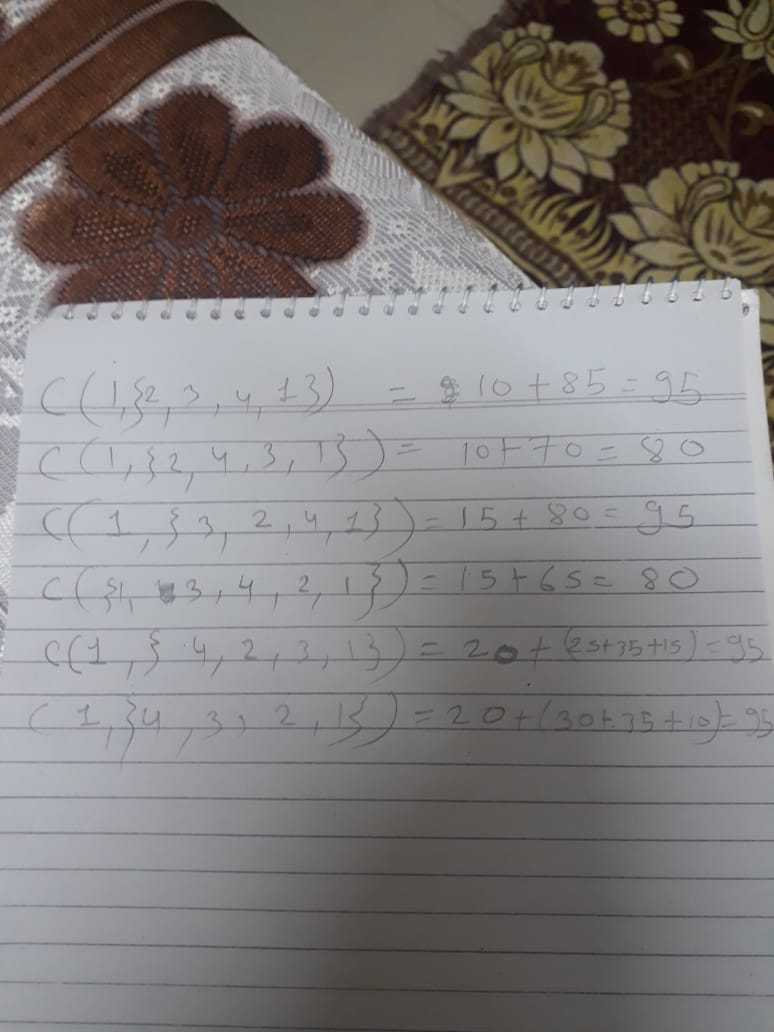 C(1,{2,3,4,1}) = 10+85=95
C(1,{2,4,3,1})= 10+70=80
C(1,{3,2,4,1})=15+80=95
C({1,3,4,2,1})=15+65=80
C(1,{4,2,3,1})=20+(25+35+15)=95
C1,{4,3,2,1})=20+(30+35+10)=95